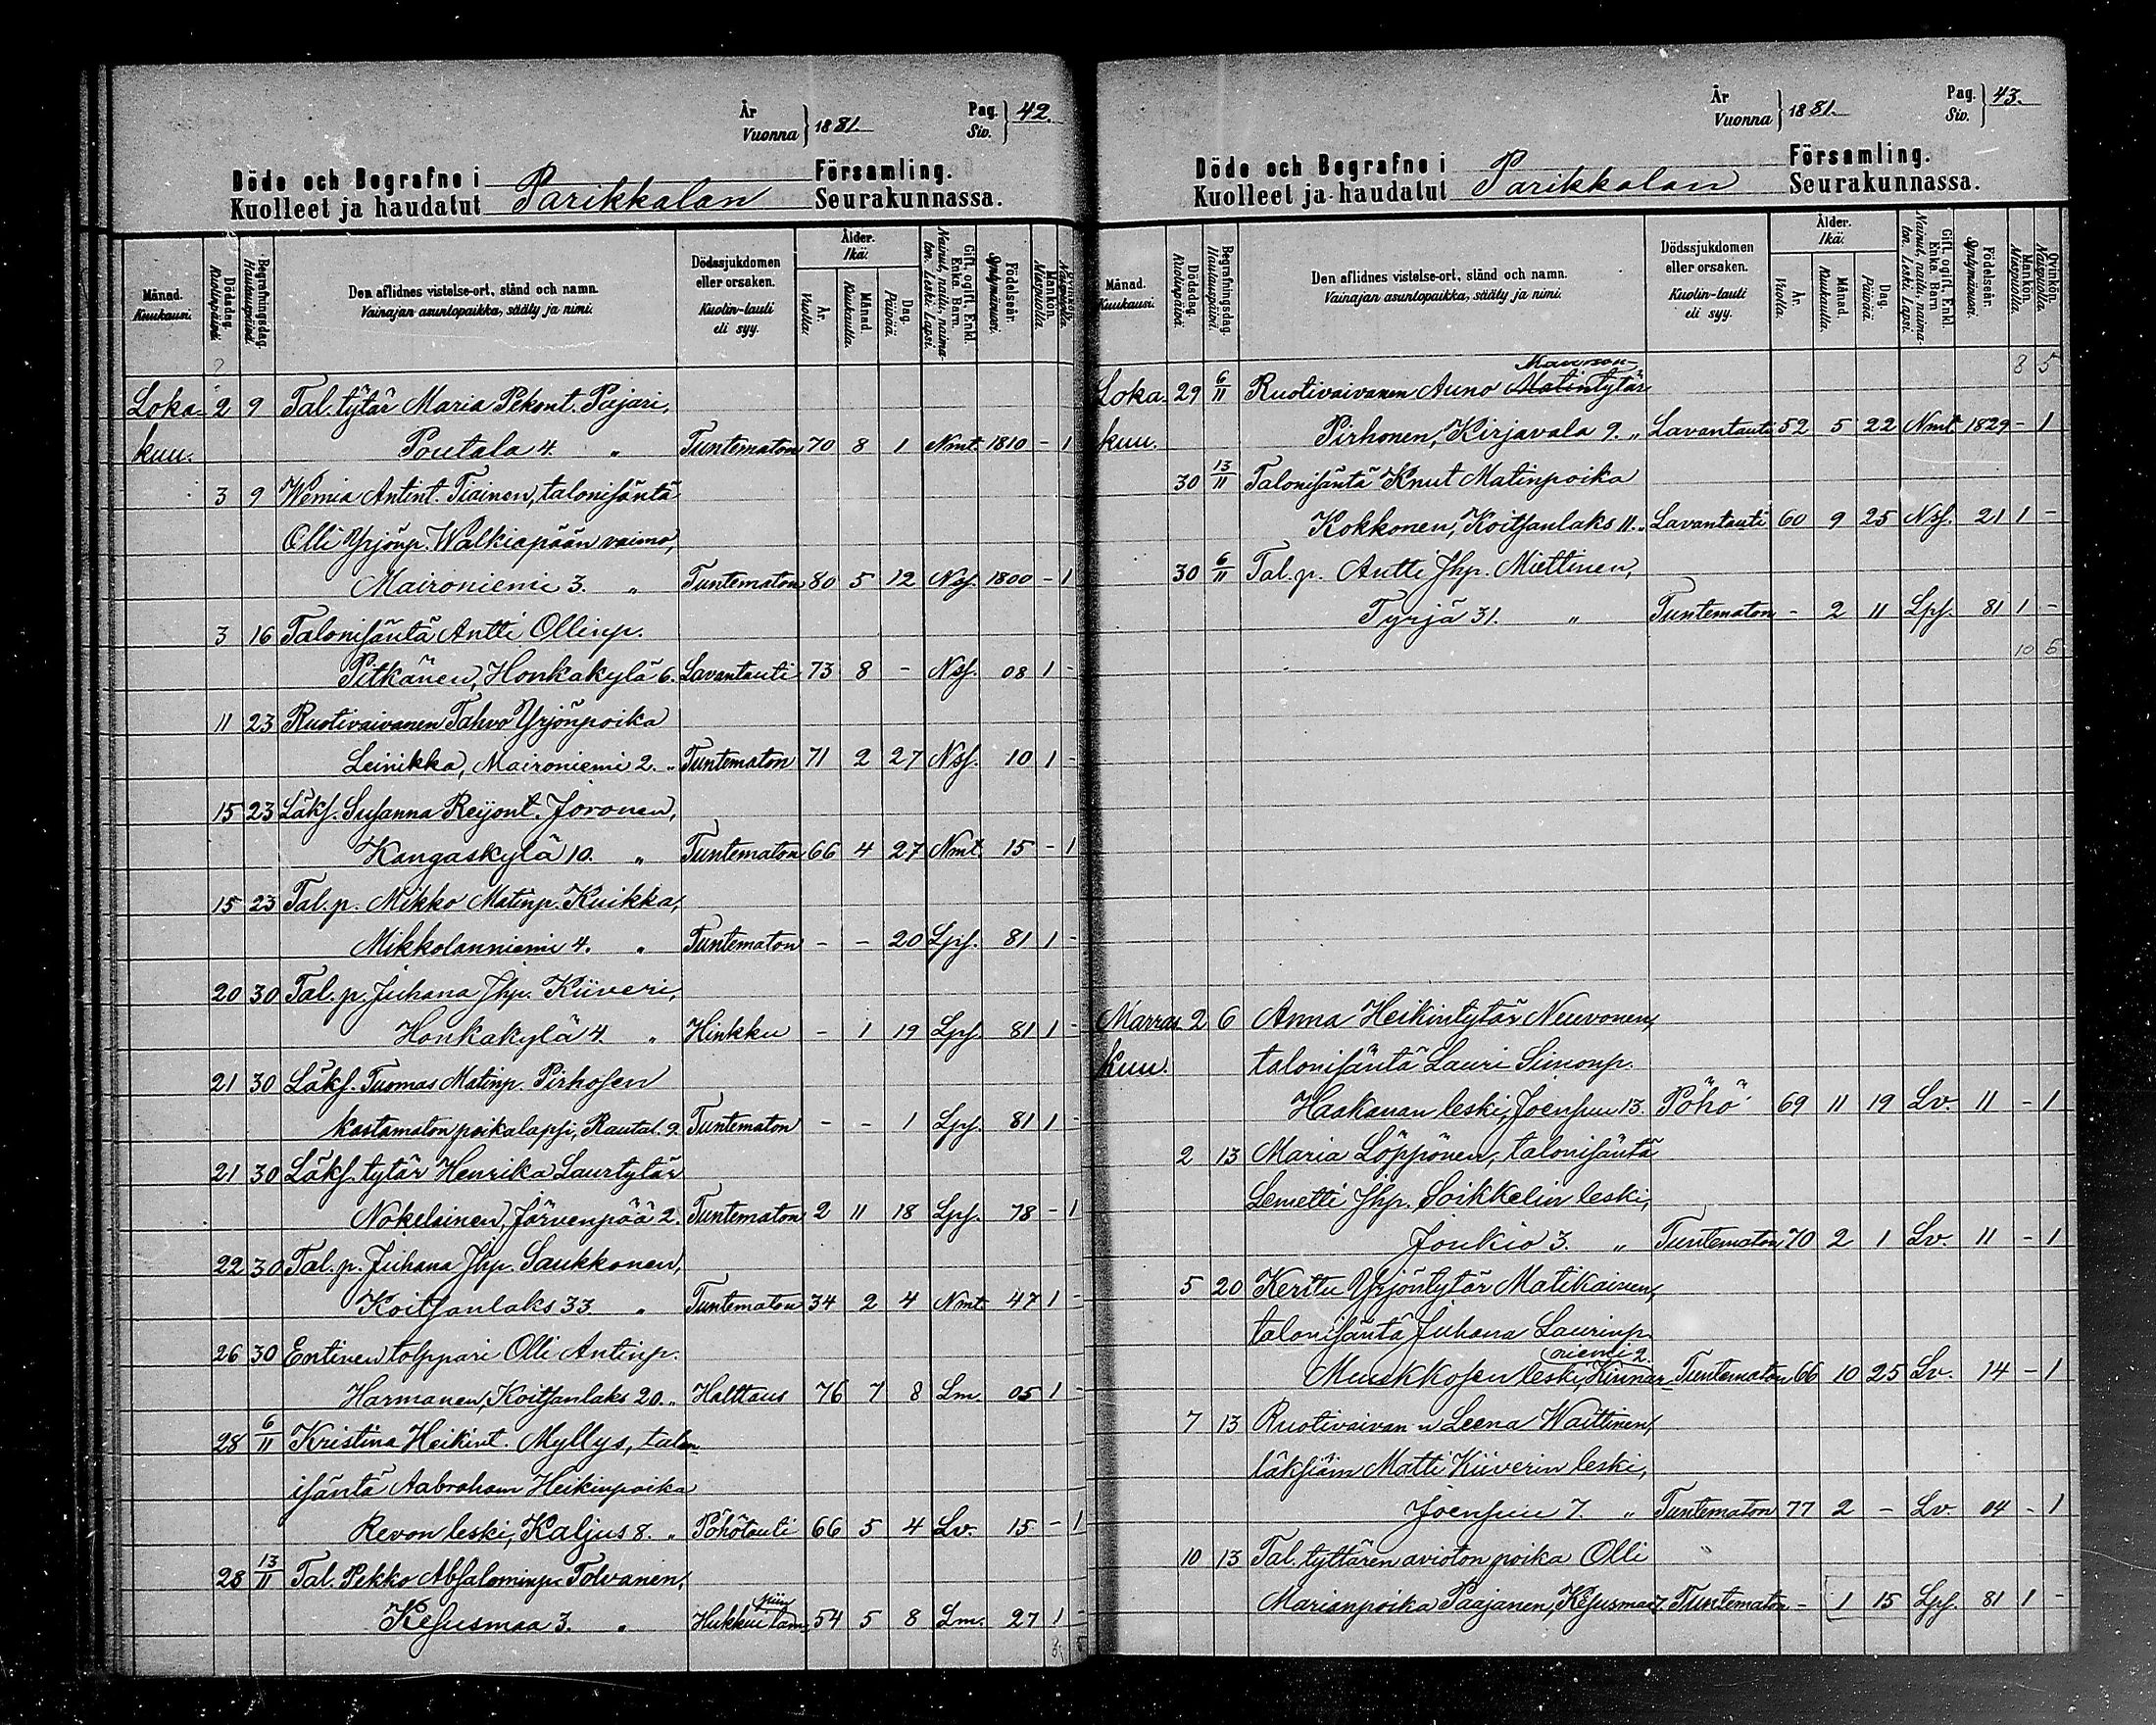 År
Vuonna } 1881.
Pag.
Siv. } 42.
Döde och Begrafne i
Kuolleet ja haudatut
Parikkalan
Församling.
Seurakunnassa.
Månad.
Kuukausi.
Dödsdag.
Kuolinpäivä.
Begrafningsdag.
Hautauspäivä.
Den aflidnes vistelse-ort, stånd och namn.
Vainajan asuntopaikka, sääty ja nimi.
Dödssjukdomen
eller orsaken.
Kuolin-tauti
eli syy.
Ålder.
Ikä.
År.
Vuotta.
Månad.
Kuukautta.
Dag.
Päivää.
Gift, ogift, Enkl.
Enka. Barn.
Nainut, naitu, naima-
ton. Leski. Lapsi.
Födelseår.
Syntymävuosi.
Mankön.
Miespuolta.
Qvinkön.
Naispuolta.
Loka- 2 9 Tal. tytär Maria Pekont. Pajari,
kuu. Poutala 4. " Tuntematon 70 8 1 Nmt. 1810 - 1
3 9 Wemia Antint. Tiainen, talonisäntä
Olli Yrjönp. Walkiapään vaimo,
Maironiemi 3. " Tuntematon 80 5 12 Nsf. 1800 - 1
3 16 Talonisäntä Antti Ollinp.
Pitkänen, Honkakylä 6. Lavantauti 73 8 - Nsf. 08 1 -
11 23 Ruotivaivanen Tahvo Yrjönpoika
Leinikka, Maironiemi 2. " Tuntematon 71 2 27 Nsf. 10 1 -
15 23 Läks. Susanna Reijont. Joronen,
Kangaskylä 10. " Tuntematon 66 4 27 Nmt. 15 - 1
15 23 Tal. p. Mikko Matinp. Kuikka,
Mikkolanniemi 4. " Tuntematon - - 20 Lps. 81 1 -
20 30 Tal. p. Juhana Jhp. Kiiveri,
Honkakylä 4. " Hinkku - 1 19 Lps. 81 1 -
21 30 Läks. Tuomas Matinp. Pirhosen
kastamaton poikalapsi, Rautal. 9. Tuntematon - - 1 Lps. 81 1 -
21 30 Läks. tytär Henrika Laurtytär
Nokelainen, Järvenpää 2. Tuntematon 2 11 18 Lps. 78 - 1
22 30 Tal. p. Juhana Jhp. Saukkonen,
Koitsanlaks 33. " Tuntematon 34 2 4 Nmt. 47 1 -
26 30 Entinen tolppari Olli Antinp.
Harmanen, Koitsanlaks 20. " Halttaus 76 7 8 Lm. 05 1 -
28 6/11 Kristina Heikint. Myllys, talon
isäntä Aabraham Heikinpoika
Revon leski, Kaljus 8. " Pöhötauti 66 5 4 Lv. 15 - 1
28 13/11 Tal. Pekko Absalominp. Tolvanen,
Kesusmaa 3. " Hukkui lam- piin 54 5 8 Lm. 27 1 -
År
Vuonna } 1881.
Pag.
Siv. } 43.
Döde och Begrafne i
Kuolleet ja haudatut
Parikkalan
Församling.
Seurakunnassa.
Månad.
Kuukausi.
Dödsdag.
Kuolinpäivä.
Begrafningsdag.
Hautauspäivä.
Den aflidnes vistelse-ort, stånd och namn.
Vainajan asuntopaikka, sääty ja nimi.
Dödssjukdomen
eller orsaken.
Kuolin-tauti
eli syy.
Ålder.
Ikä.
År.
Vuotta.
Månad.
Kuukautta.
Dag.
Päivää.
Gift, ogift, Enkl.
Enka. Barn
Nainut, naitu, naima-
ton. Leski. Lapsi.
Födelseår.
Syntymävuosi.
Mankön.
Miespuolta.
Qvinkön.
Naispuolta.
8 5
Loka- 29 6/11 Ruotivaivanen Auno Matintytär
kuu. Pirhonen, Kirjavala 9. " Lavantauti 52 5 22 Nmt 1829 - 1
30 13/11 Talonisäntä Knut Matinpoika
Kokkonen, Koitsanlaks 11. " Lavantauti 60 9 25 Nsf. 21 1 -
30 6/11 Tal. p. Antti Jhp. Miettinen,
Tyrjä 31. " Tuntematon - 2 11 Lps. 81 1 -
10 6
Marras 2 6 Anna Heikintytär Neuvonen,
kuu. talonisäntä Lauri Simonp.
Haakanan leski, Joensuu 13. Pöhö 69 11 19 Lv. 11 - 1
2 13 Maria Löppönen, talonisäntä
Lemetti Jhp. Soikkelin leski,
Joukio 3. " Tuntematon 70 2 1 Lv. 11 - 1
5 20 Kerttu Yrjöntytär Matikainen,
talonisäntä Juhana Laurinp.
Munkkosen leski, Kirinar- niemi 2. Tuntematon 66 10 25 Lv. 14 - 1
7 13 Ruotivaivan n Leena Waittinen,
läksiäin Matti Kiiverin leski,
Joensuu 7. " Tuntematon 77 2 - Lv. 04 - 1
10 13 Tal. tyttären avioton poika Olli
Marianpoika Paajanen, Kesusmaa 7 Tuntematon - 1 15 Lps. 81 1 -